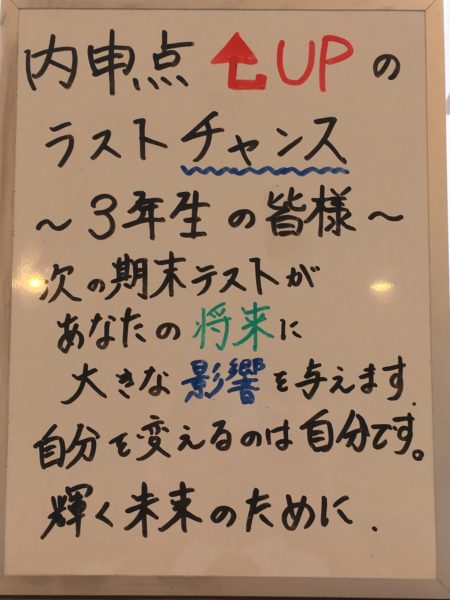 内申点⬆UPの
ラストチャンス
~3年生の皆様~
次の期末テストが
あなたの将来に
大きな影響を与えます
自分を変えるのは自分です。
輝く未来のために.